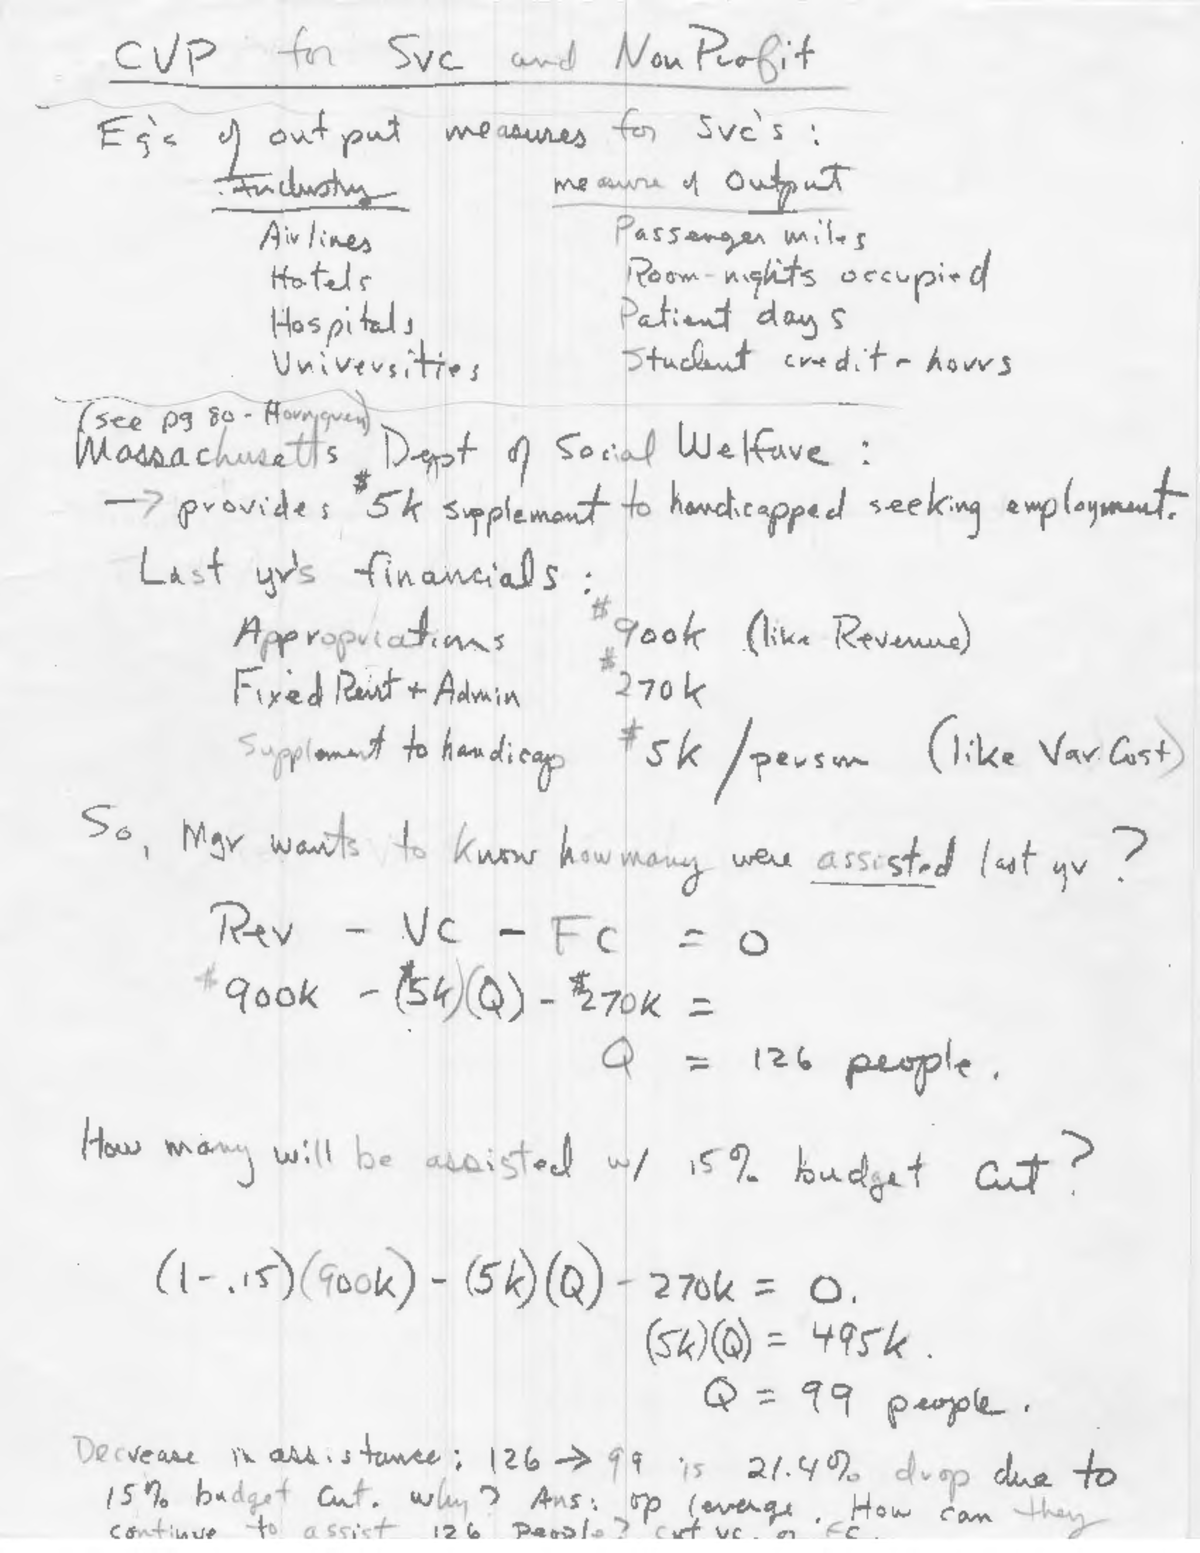 CVP for Svc and NonProfit
Eg's of output measures for Svc's :
Industry measure of Output
Airlines Passenger miles
Hotels Room-nights occupied
Hospitals Patient days
Universities Student credit-hours
(see pg 80 - Horngren)
Massachusetts Dept of Social Welfare :
→ provides $5k supplement to handicapped seeking employment.
Last yr's financials :
Appropriations $900k (like Revenue)
Fixed Rent + Admin $270k
Supplement to handicap $5k /person (like Var. Cost)
So, Mgr wants to know how many were assisted last yr ?
Rev - VC - FC = 0
$900k - ($5k)(Q) - $270k =
Q = 126 people.
How many will be assisted w/ 15% budget cut?
(1-.15)(900k) - (5k)(Q) - 270k = 0.
(5k)(Q) = 495k.
Q = 99 people.
Decrease in assistance: 126 → 99 is 21.4% drop due to
15% budget cut. why? Ans: op leverge. How can they
continue to assist 126 people? cut vc or FC.